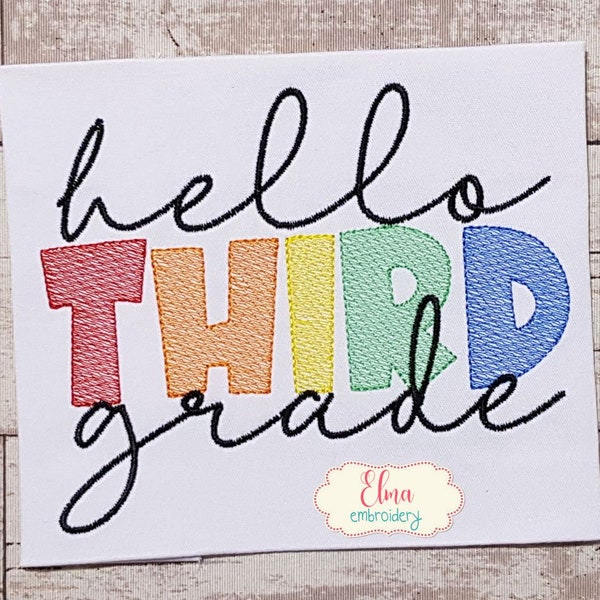 hello
THIRD
grade
Elma
embroidery